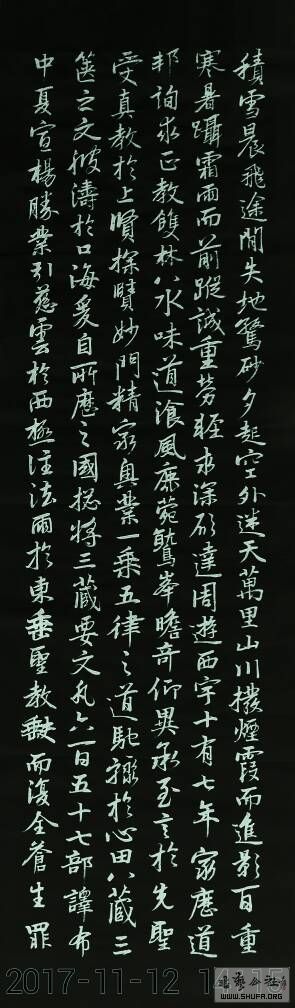 積雪晨飛途間失地驚砂夕起空外迷天萬里山川撥煙霞而進影百重
寒暑躡霜雨而前蹤誠重勞輕求深願達周遊西宇十有七年窮歷道
邦詢求正教雙林八水味道湌風鹿菀鷲峯瞻奇仰異承至言於先聖
受真教於上賢探賾妙門精窮奧業一乘五律之道馳驟於心田八藏三
篋之文波濤於口海爰自所歷之國揔將三藏要文凡六百五十七部譯布
中夏宣揚勝業引慈雲於西極注法雨於東垂聖教缺而復全蒼生罪
2017-11-12
WWW.SHUFA.ORG